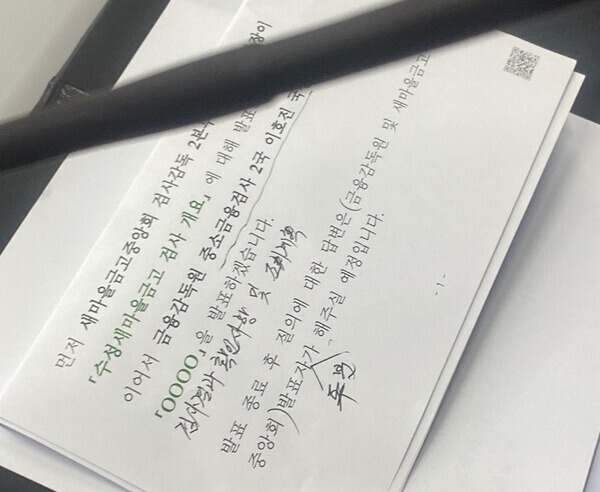 먼저 새마을금고중앙회 검사감독 2본부장이
「수성새마을금고 검사 개요」에 대해 발표
이어서 금융감독원 중소금융검사 2국 이호진 국
「OOOO」을 발표하겠습니다.
검사결과 확인사항 및 조치계획
발표 종료 후 질의에 대한 답변은(금융감독원 및 새마을금고
중앙회)발표자가 해주실 예정입니다.
- 1 -